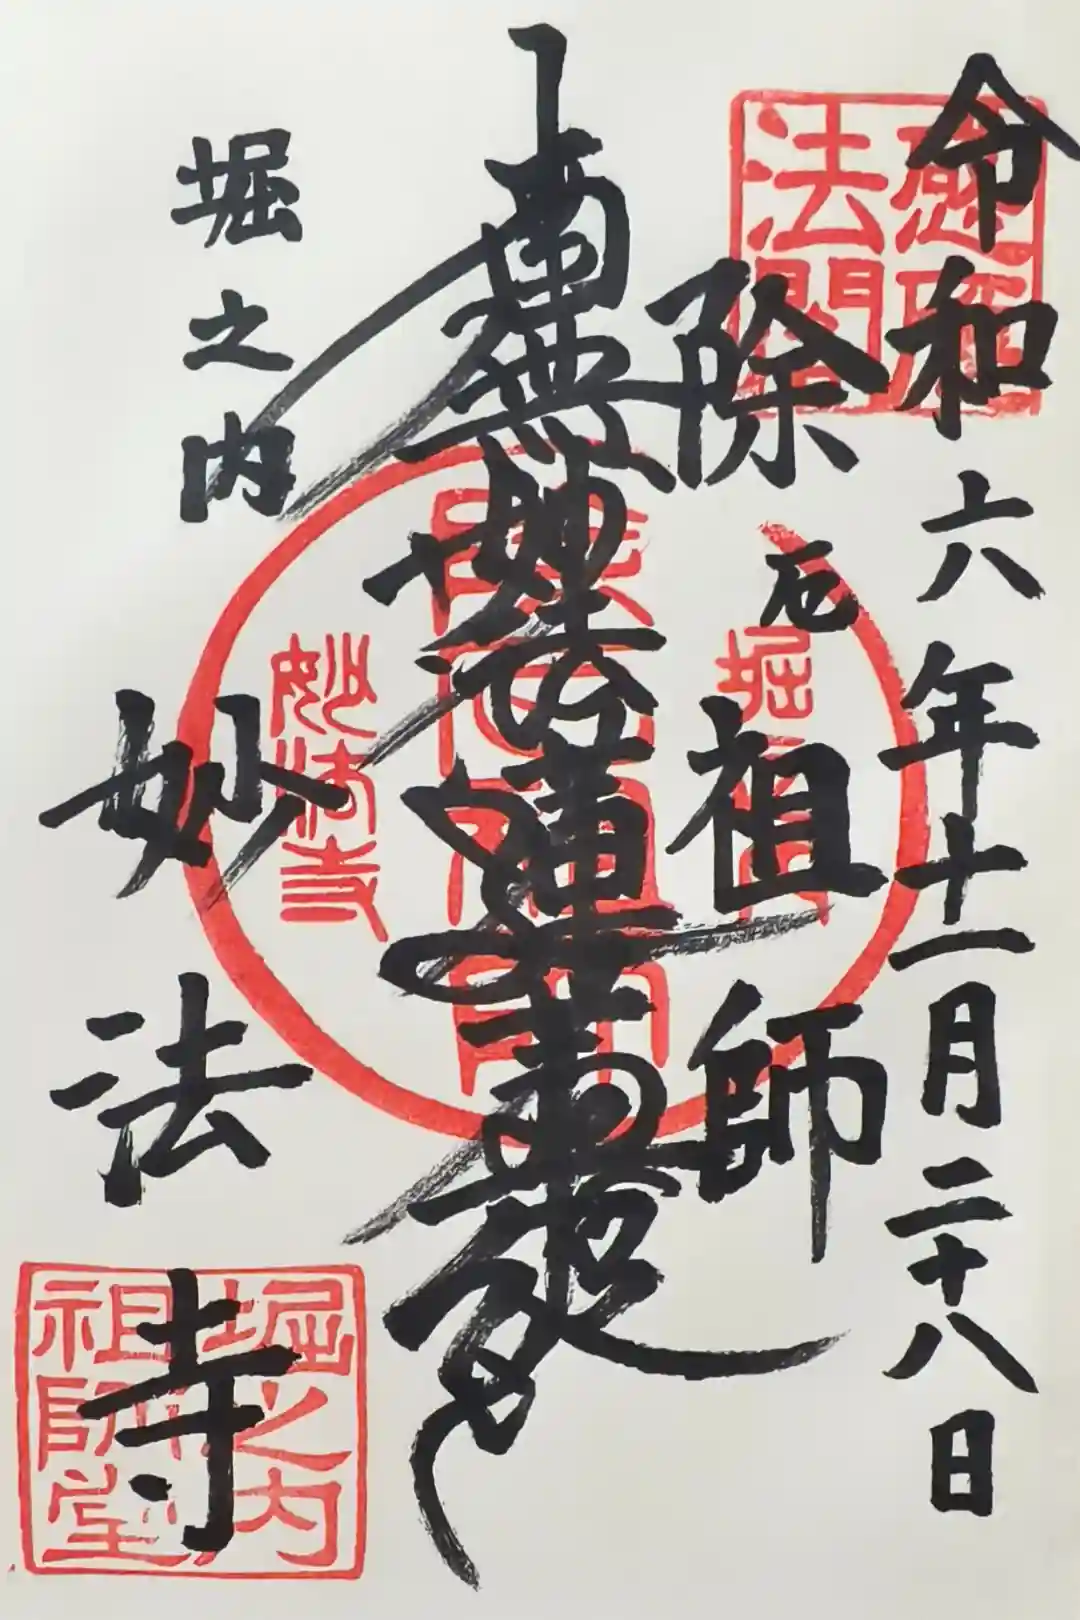 令和六年十一月二十八日
除厄祖師
南無妙法蓮華經
堀之内
妙法寺
妙法寺
堀之内
祖師堂